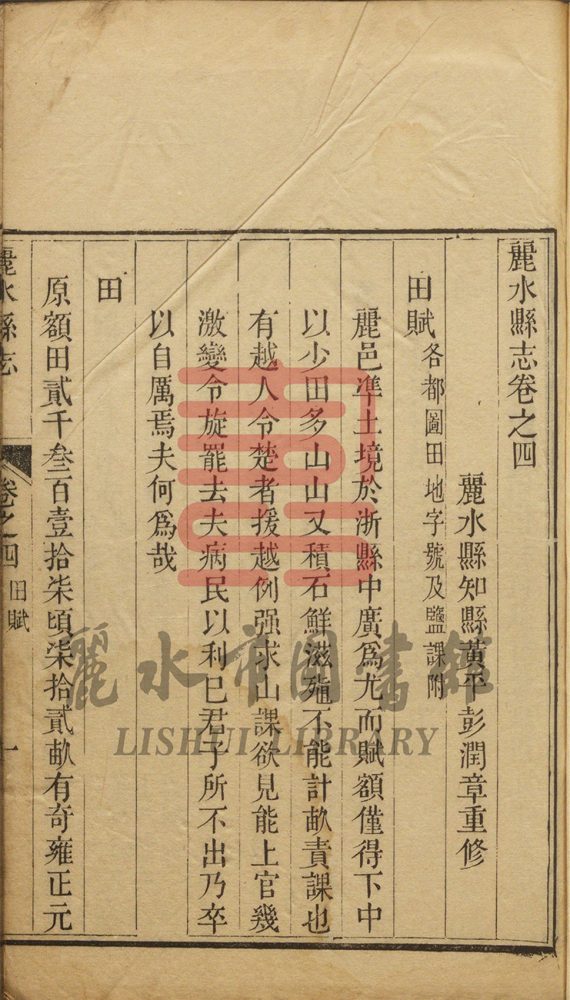 麗水縣志卷之四
麗水縣知縣黃平彭潤章重修
田賦各都圖田地字號及鹽課附
麗邑凖土境於浙縣中廣爲尤而賦額僅得下中
以少田多山山又積石鮮滋殖不能計畝責課也
有越人令楚者援越例强求山課欲見能上官幾
激變令旋罷去夫病民以利已君子所不出乃卒
以自厲焉夫何爲哉
田
原額田貳千叁百壹拾柒頃柒拾貳畝有奇雍正元
麗水縣志
卷之四
田賦
一
麗水市圖書館
LISHUI LIBRARY